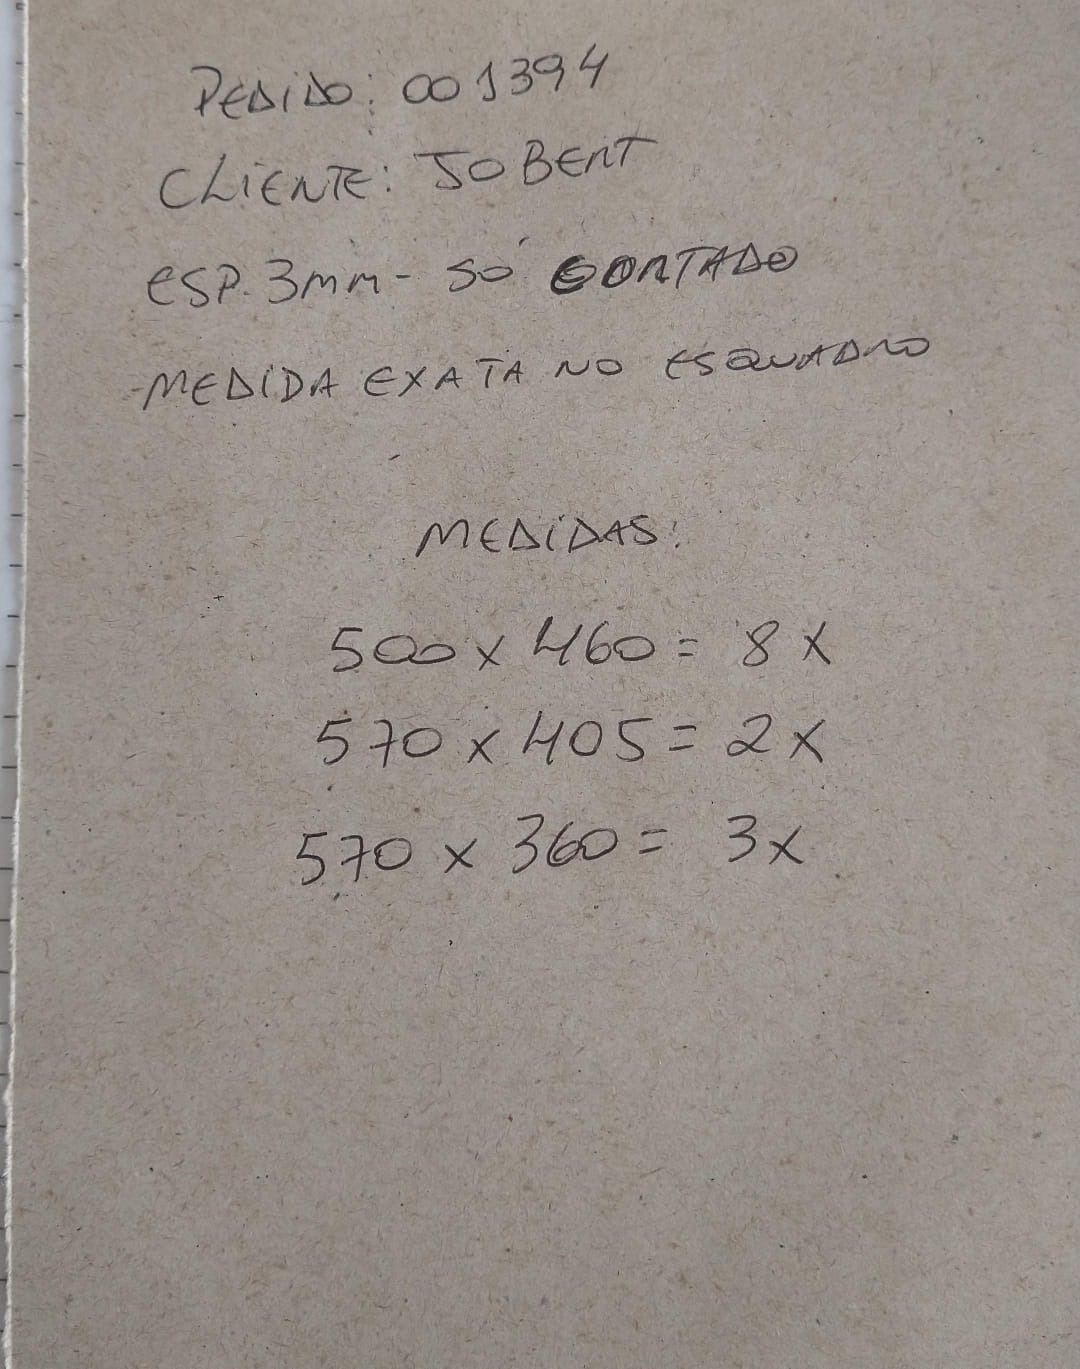 PEDIDO: 001394
CLIENTE: JOBERT
ESP. 3mm - SÓ CORTADO
-MEDIDA EXATA NO ESQUADRO
MEDIDAS:
500 x 460 = 8 x
570 x 405 = 2 x
570 x 360 = 3 x